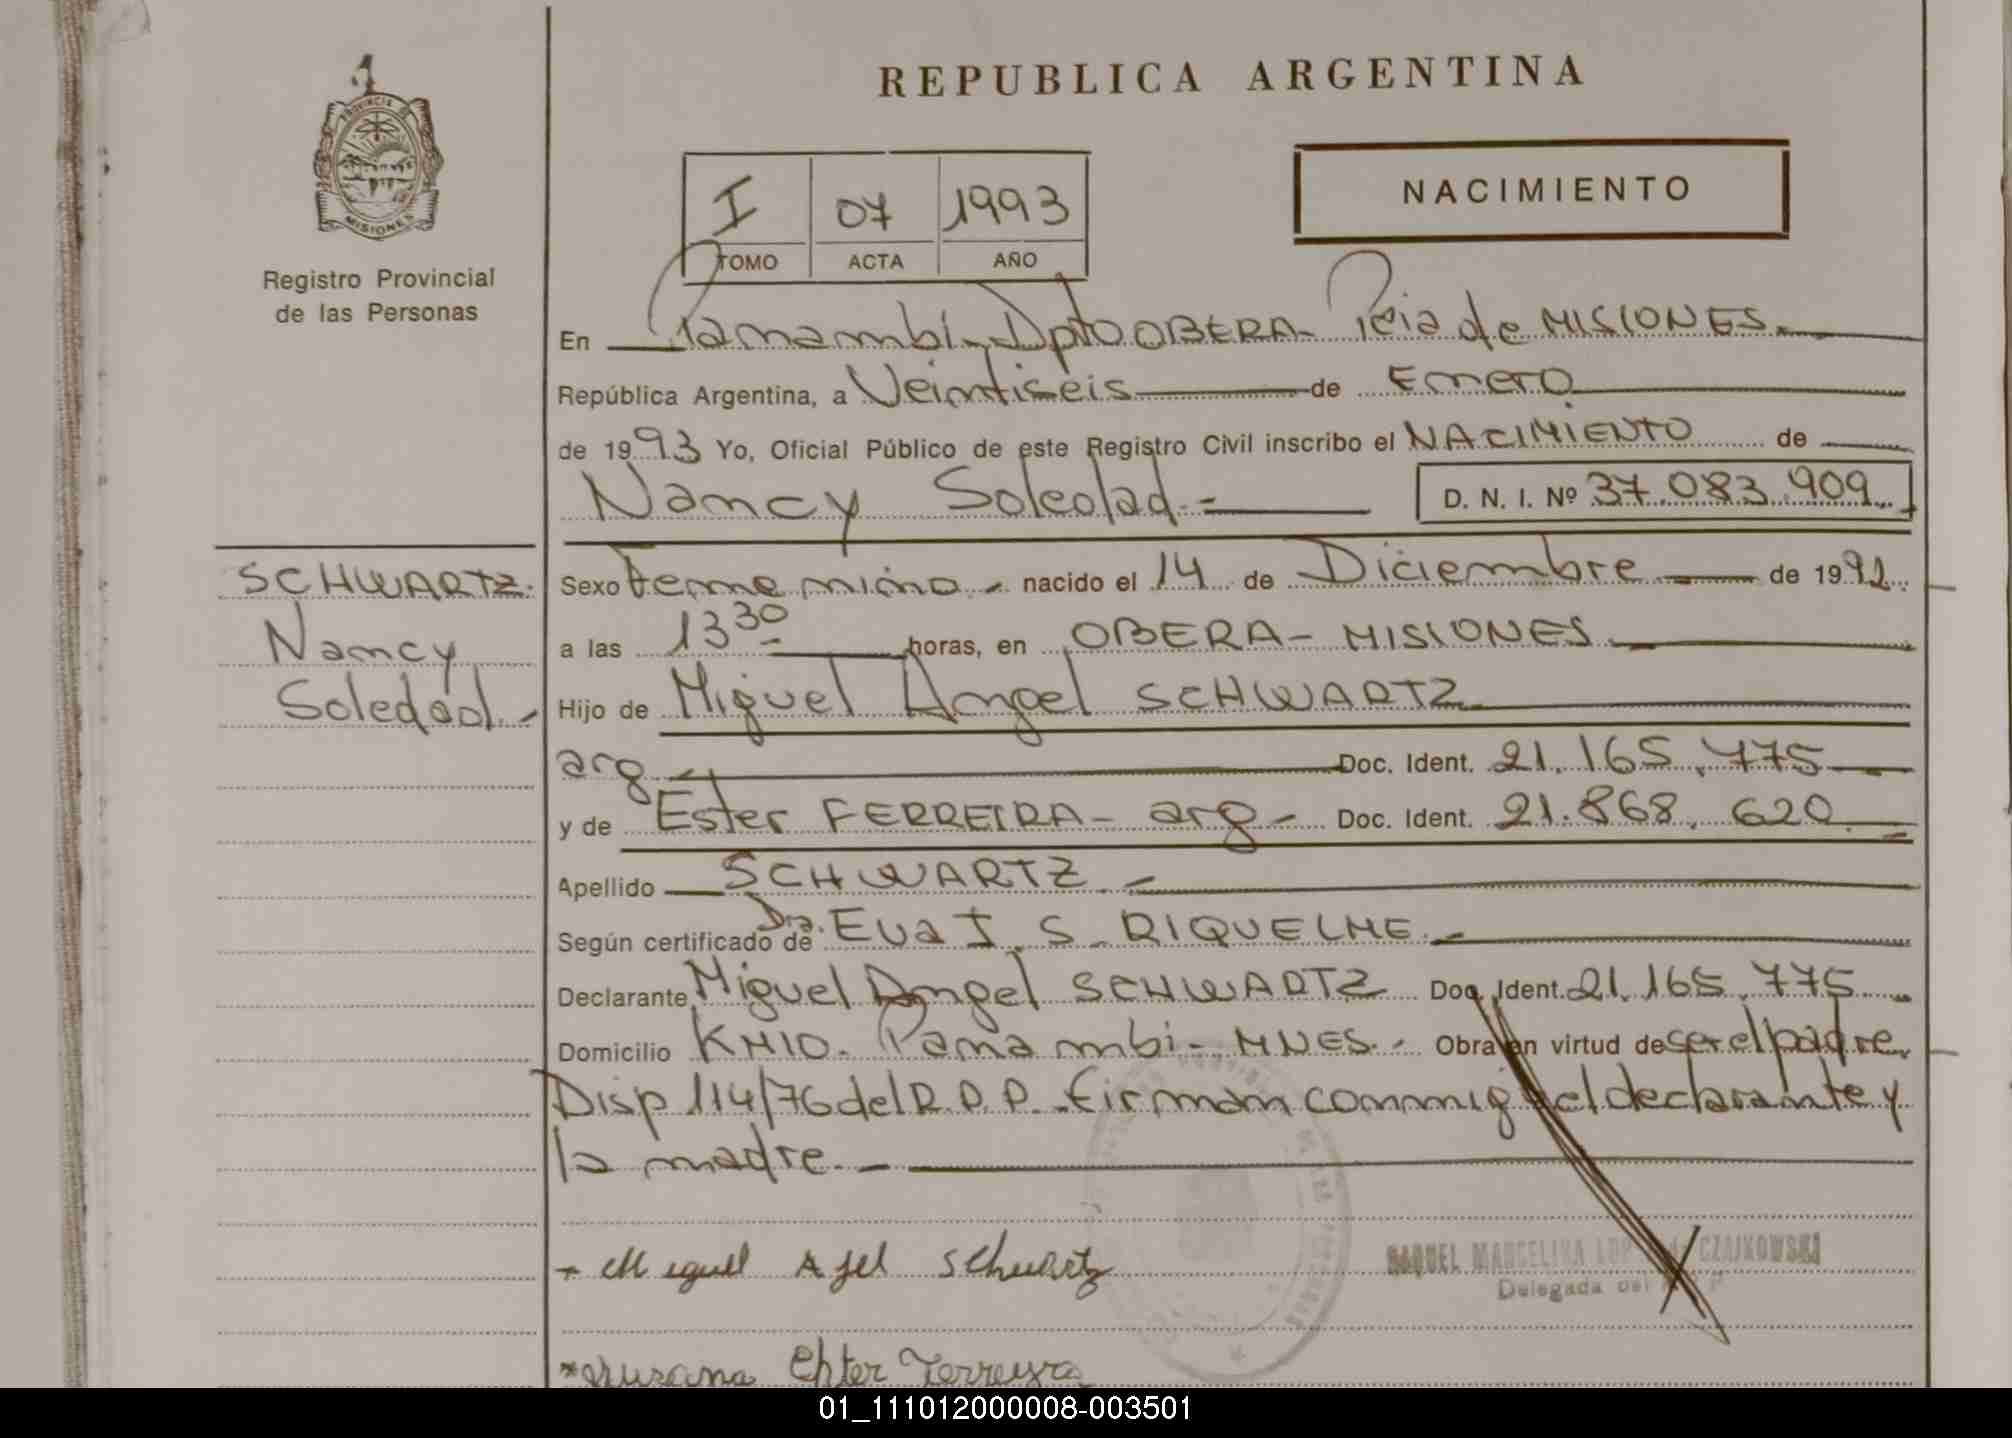 PROVINCIA DE
MISIONES
Registro Provincial
de las Personas
REPUBLICA ARGENTINA
I 07 1993
TOMO ACTA AÑO
NACIMIENTO
En Panambí - Dpto OBERA - Pcia de MISIONES.
República Argentina, a Veintiseis de Enero
de 1993 Yo, Oficial Público de este Registro Civil inscribo el NACIMIENTO de
Nancy Soledad.- D. N. I. Nº 37.083.909
SCHWARTZ.
Nancy
Soledad.-
Sexo Femenino.- nacido el 14 de Diciembre de 1992
a las 13 30 horas, en OBERA - MISIONES
Hijo de Miguel Angel SCHWARTZ
arg Doc. Ident. 21.165.775
y de Ester FERREIRA - arg - Doc. Ident. 21.868.620
Apellido SCHWARTZ.-
Según certificado de Dra. Eva I. S. RIQUELME.-
Declarante Miguel Angel SCHWARTZ Doc. Ident. 21.165.775
Domicilio KM10. Panambi - MNES.- Obra en virtud de ser el padre
Disp 114/76 del R.P.P. Firman conmigo el declarante y
la madre.-
Miguel Schwartz
RAQUEL MARCELINA CZAJKOWSKI
Delegada del
Susana Ehter Ferreyra
01_111012000008-003501